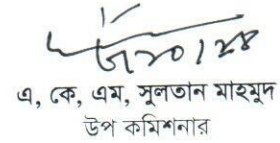 এ, কে, এম, সুলতান মাহমুদ
উপ কমিশনার